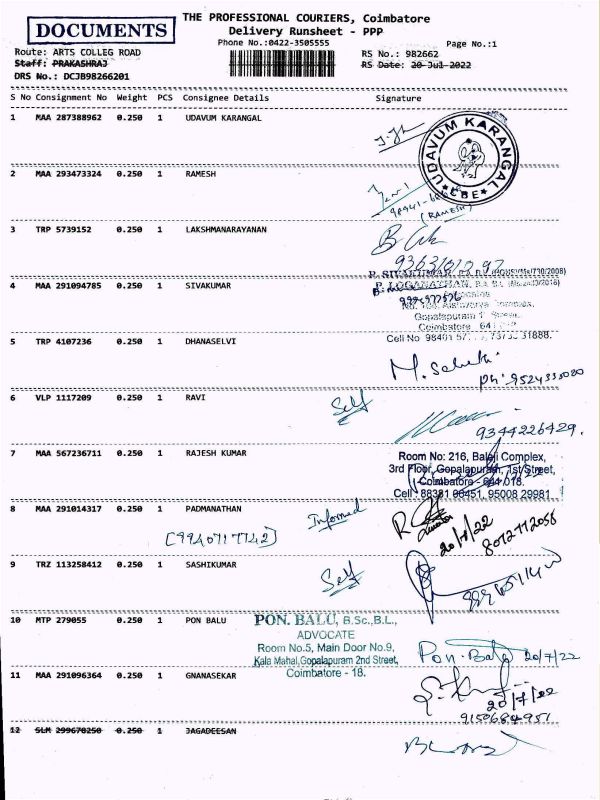 DOCUMENTS
THE PROFESSIONAL COURIERS, Coimbatore
Delivery Runsheet - PPP
Phone No.:0422-3505555
Page No.:1
Route: ARTS COLLEG ROAD
RS No.: 982662
Staff: PRAKASHRAJ
RS Date: 20-Jul-2022
DRS No.: DCJB98266201
S No Consignment No Weight PCS Consignee Details Signature
1 MAA 287388962 0.250 1 UDAVUM KARANGAL
UDAVUM KARANGAL
CBE
2 MAA 293473324 0.250 1 RAMESH
(RAMESH)
3 TRP 5739152 0.250 1 LAKSHMANARAYANAN
4 MAA 291094785 0.250 1 SIVAKUMAR
P. LOGANATHAN,
Gopalapuram
Coimbatore
Cell No
5 TRP 4107236 0.250 1 DHANASELVI
6 VLP 1117209 0.250 1 RAVI
Self
9344226429.
7 MAA 567236711 0.250 1 RAJESH KUMAR
Room No: 216, Balaji Complex,
3rd Floor, Gopalapuram, 1st Street,
Coimbatore - 641 018.
Cell : 88381 06451, 95008 29981
8 MAA 291014317 0.250 1 PADMANATHAN
Informed
20/7/22
8072772058
9 TRZ 113258412 0.250 1 SASHIKUMAR
Self
10 MTP 279055 0.250 1 PON BALU
PON. BALU, B.Sc.,B.L.,
ADVOCATE
Room No.5, Main Door No.9,
Kala Mahal,Gopalapuram 2nd Street,
Coimbatore - 18.
Pon. Balu 20/7/22
11 MAA 291096364 0.250 1 GNANASEKAR
20/7/22
9150684951
12 SLM 299670250 0.250 1 JAGADEESAN